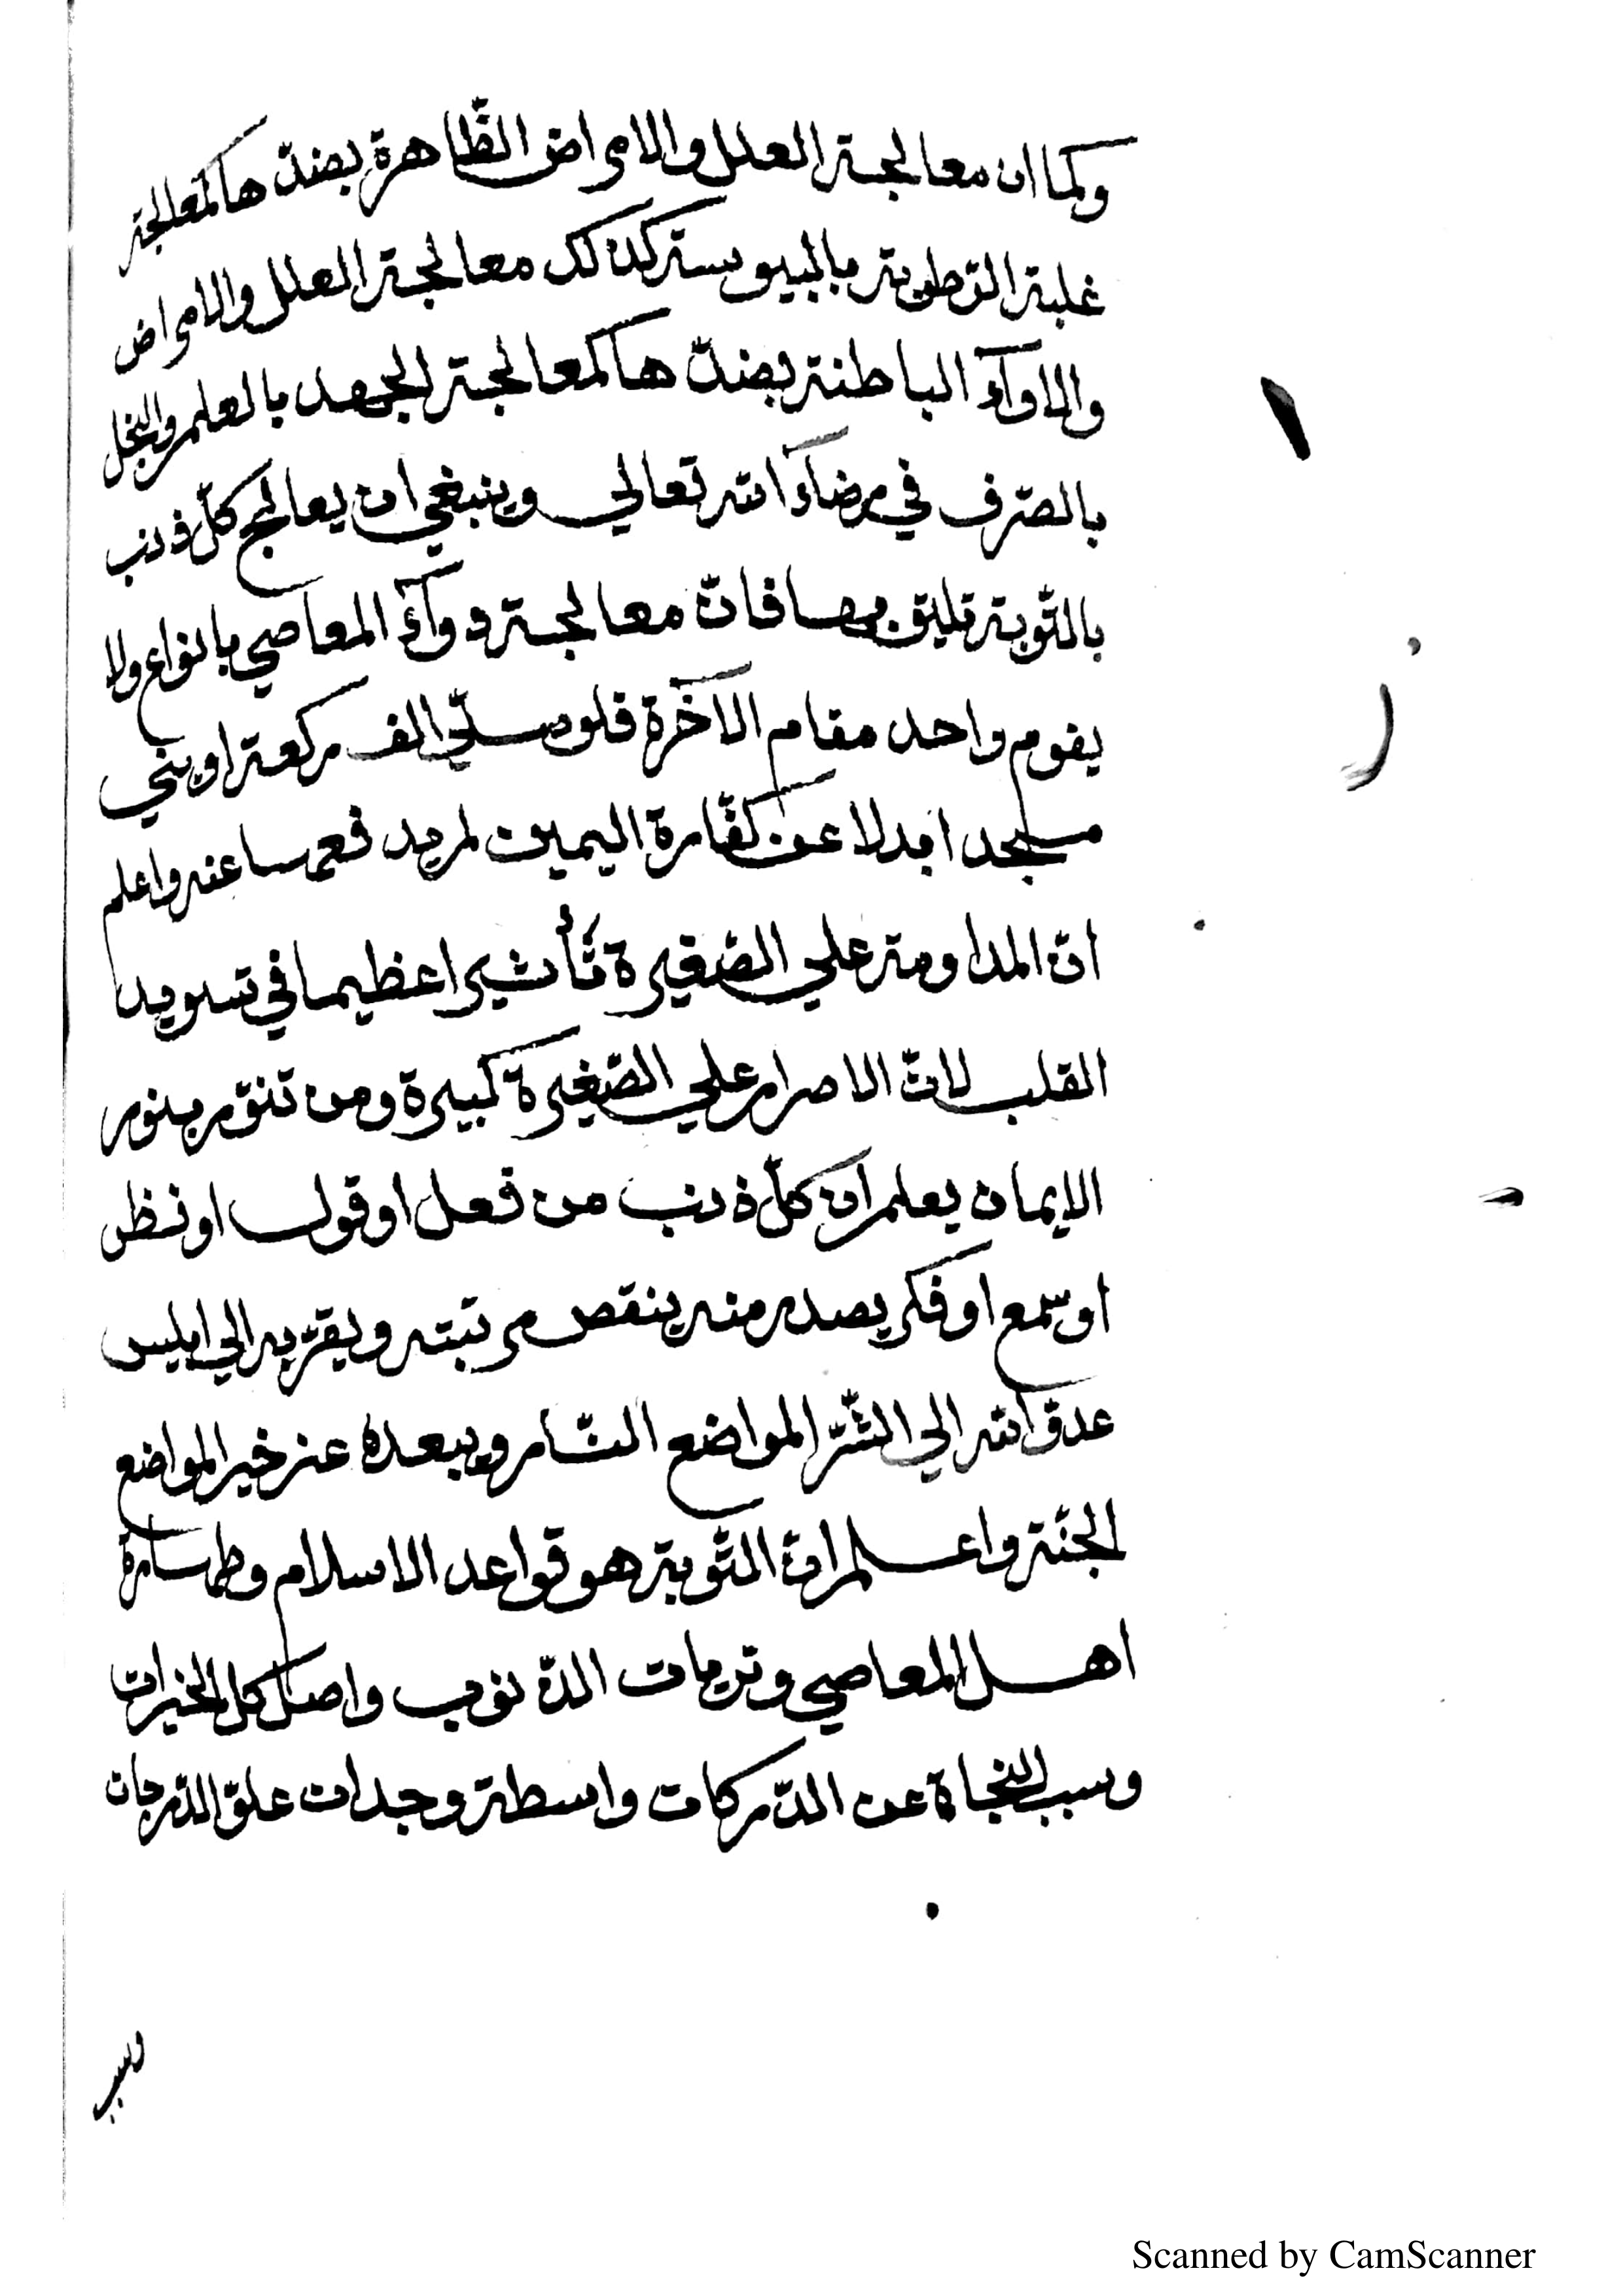 وكما ان معالجة العلل والامراض الظّاهرة بضدّها كمعالجة
غلبة الرّطوبة باليبوسة كذلك معالجة العلل والامراض
والادوآء الباطنة بضدّها كمعالجة الجهد بالعلم والبخل
بالصّرف في مرضآء الله تعالي وينبغي ان يعالج كلّ ذنب
بالتّوبة تليق بها فانّ معالجة دوآء المعاصي بانواع ولا
يقوم واحد مقام الآخرة فلو صلّي الف ركعة او بني
مسجدا بدلا عن كفّارة اليمين لم يدفعها عنه واعلم
انّ المداومة علي الصّغيرة تأثيرا عظيما في تسويد
القلب لانّ الاصرار علي الصّغيرة كبيرة ومن تنوّر بنور
الايمان يعلم ان كلّ ذنب من فعل او قول او نظر
او سمع او فكر يصدر منه ينقص مرتبته ويقرّبه الي ابليس
عدوّ الله الي الشّرّ المواضع النّار ويبعده عن خير المواضع
الجنّة واعلم انّ التّوبة هو قواعد الاسلام وطهارة
اهل المعاصي وترياق الذّنوب واصل كل الخيرات
وسبب النجاة عن الدّركات واسطة وجدان علوّ الدّرجات
Scanned by CamScanner